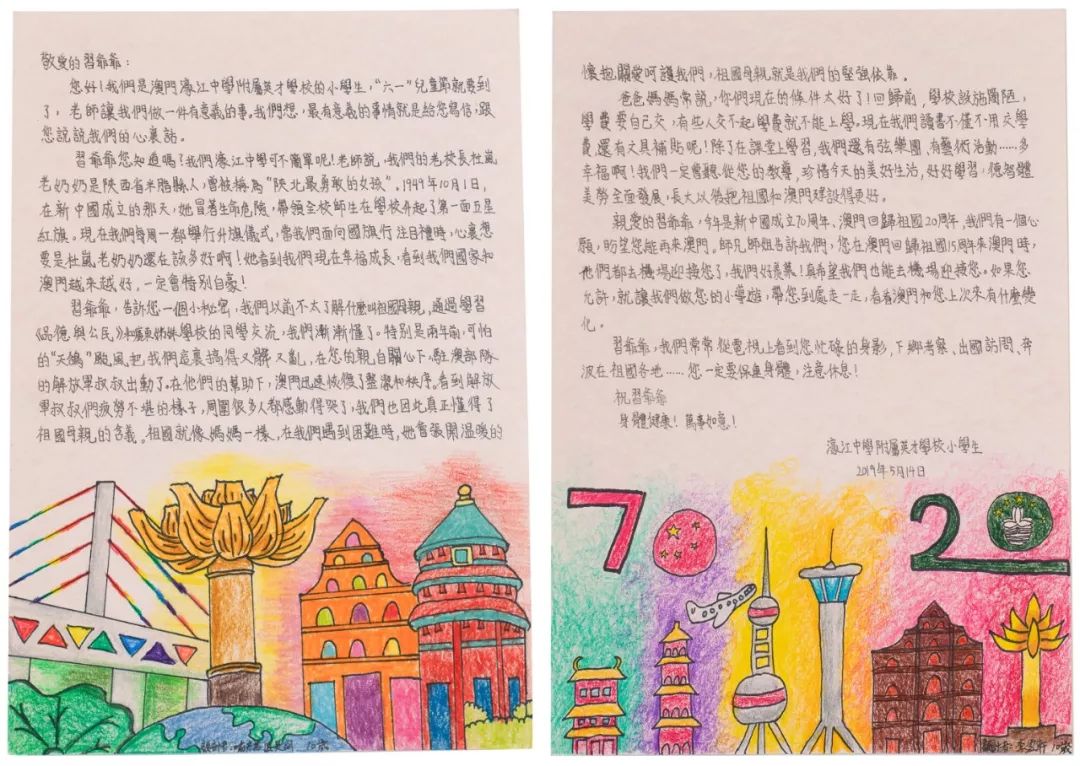 敬愛的習爺爺：
您好！我們是澳門濠江中學附屬英才學校的小學生，“六一”兒童節就要到
了，老師讓我們做一件有意義的事，我們想，最有意義的事情就是給您寫信，跟
您說說我們的心裏話。
習爺爺您知道嗎？我們濠江中學可不簡單呢！老師說，我們的老校長杜嵐
老奶奶是陝西省米脂縣人，曾被稱為“陝北最勇敢的女孩”。1949年10月1日，
在新中國成立的那天，她冒著生命危險，帶領全校師生在學校升起了第一面五星
紅旗。現在我們每周一都舉行升旗儀式，當我們面向國旗行注目禮時，心裏想
要是杜嵐老奶奶還在該多好啊！她看到我們現在幸福成長，看到我們國家和
澳門越來越好，一定會特別自豪！
習爺爺，告訴您一個小秘密，我們以前不太了解什麼叫祖國母親，通過學習
《品德與公民》和廣東姊妹學校的同學交流，我們漸漸懂了。特別是兩年前，可怕
的“天鴿”颱風把我們這裏搞得又髒又亂，在您的親自關心下，駐澳部隊
的解放軍叔叔出動了。在他們的幫助下，澳門迅速恢復了整潔和秩序。看到解放
軍叔叔們疲勞不堪的樣子，周圍很多人都感動得哭了，我們也因此真正懂得了
祖國母親的含義。祖國就像媽媽一樣，在我們遇到困難時，她會張開溫暖的
設計者： 10歲
懷抱關愛呵護我們，祖國母親就是我們的堅強依靠。
爸爸媽媽常說，你們現在的條件太好了！回歸前，學校設施簡陋，
學費要自己交，有些人交不起學費就不能上學。現在我們讀書不僅不用交學
費，還有文具補貼呢！除了在課堂上學習，我們還有弦樂團，有藝術活動……多
幸福啊！我們一定會聽從您的教導，珍惜今天的美好生活，好好學習，德智體
美勞全面發展，長大以後把祖國和澳門建設得更好。
親愛的習爺爺，今年是新中國成立70周年、澳門回歸祖國20周年，我們有一個心
願，盼望您能再來澳門。師兄師姐告訴我們，您在澳門回歸祖國15周年來澳門時，
他們都去機場迎接您了，我們好羨慕！真希望我們也能去機場迎接您。如果您
允許，就讓我們做您的小導遊，帶您到處走一走，看看澳門和您上次來有什麼變
化。
習爺爺，我們常常從電視上看到您忙碌的身影，下鄉考察、出國訪問、奔
波在祖國各地……您一定要保重身體，注意休息！
祝習爺爺
身體健康！萬事如意！
濠江中學附屬英才學校小學生
2019年5月14日
70 20
設計者： 10歲